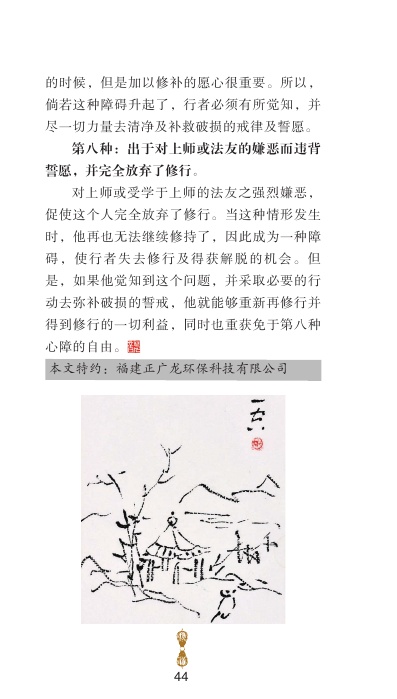 的时候，但是加以修补的愿心很重要。所以，
倘若这种障碍升起了，行者必须有所觉知，并
尽一切力量去清净及补救破损的戒律及誓愿。
第八种：出于对上师或法友的嫌恶而违背
誓愿，并完全放弃了修行。
对上师或受学于上师的法友之强烈嫌恶，
促使这个人完全放弃了修行。当这种情形发生
时，他再也无法继续修持了，因此成为一种障
碍，使行者失去修行及得获解脱的机会。但
是，如果他觉知到这个问题，并采取必要的行
动去弥补破损的誓戒，他就能够重新再修行并
得到修行的一切利益，同时也重获免于第八种
心障的自由。
本文特约：福建正广龙环保科技有限公司
44